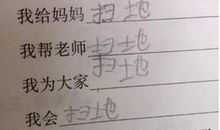 我给妈妈扫地
我帮老师扫地
我为大家扫地
我会扫地